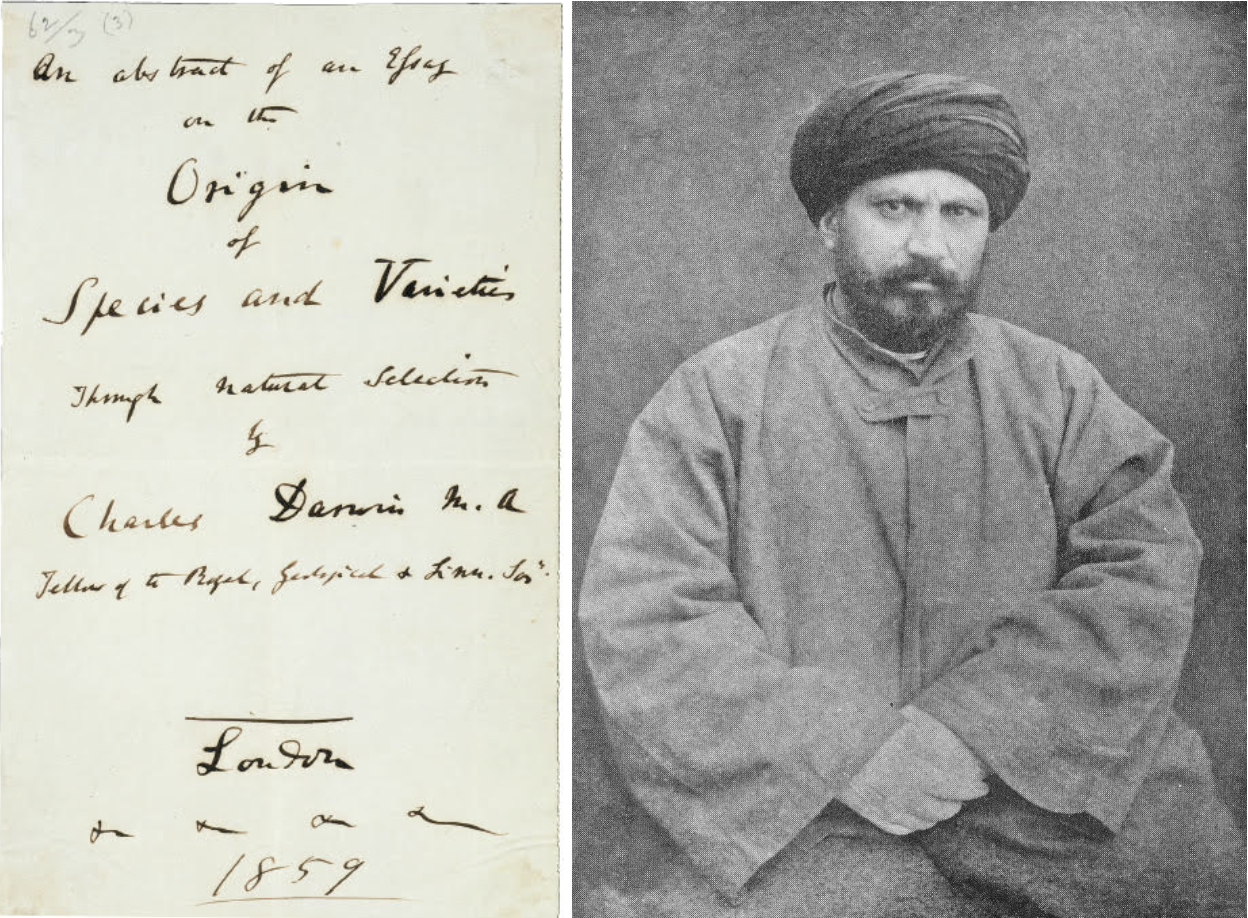 62/3 (3)
An abstract of an Essay
on the
Origin
of
Species and Varieties
Through natural Selection
by
Charles Darwin M. A
Fellow of the Royal, Geological & Linn. Socy.
London
&c &c &c &c
1859